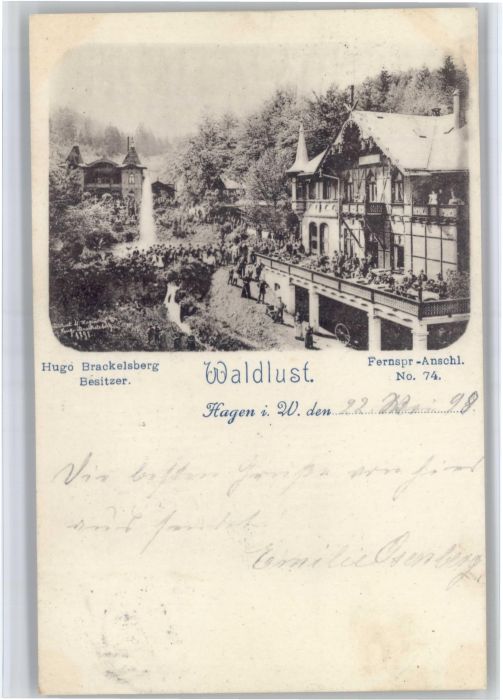 Hugo Brackelsberg
Besitzer.
Waldlust.
Fernspr-Anschl.
No. 74.
Hagen i. W. den 22. Mai 98
Die besten Grüße von hier
aus sendet
Emilie Osenberg